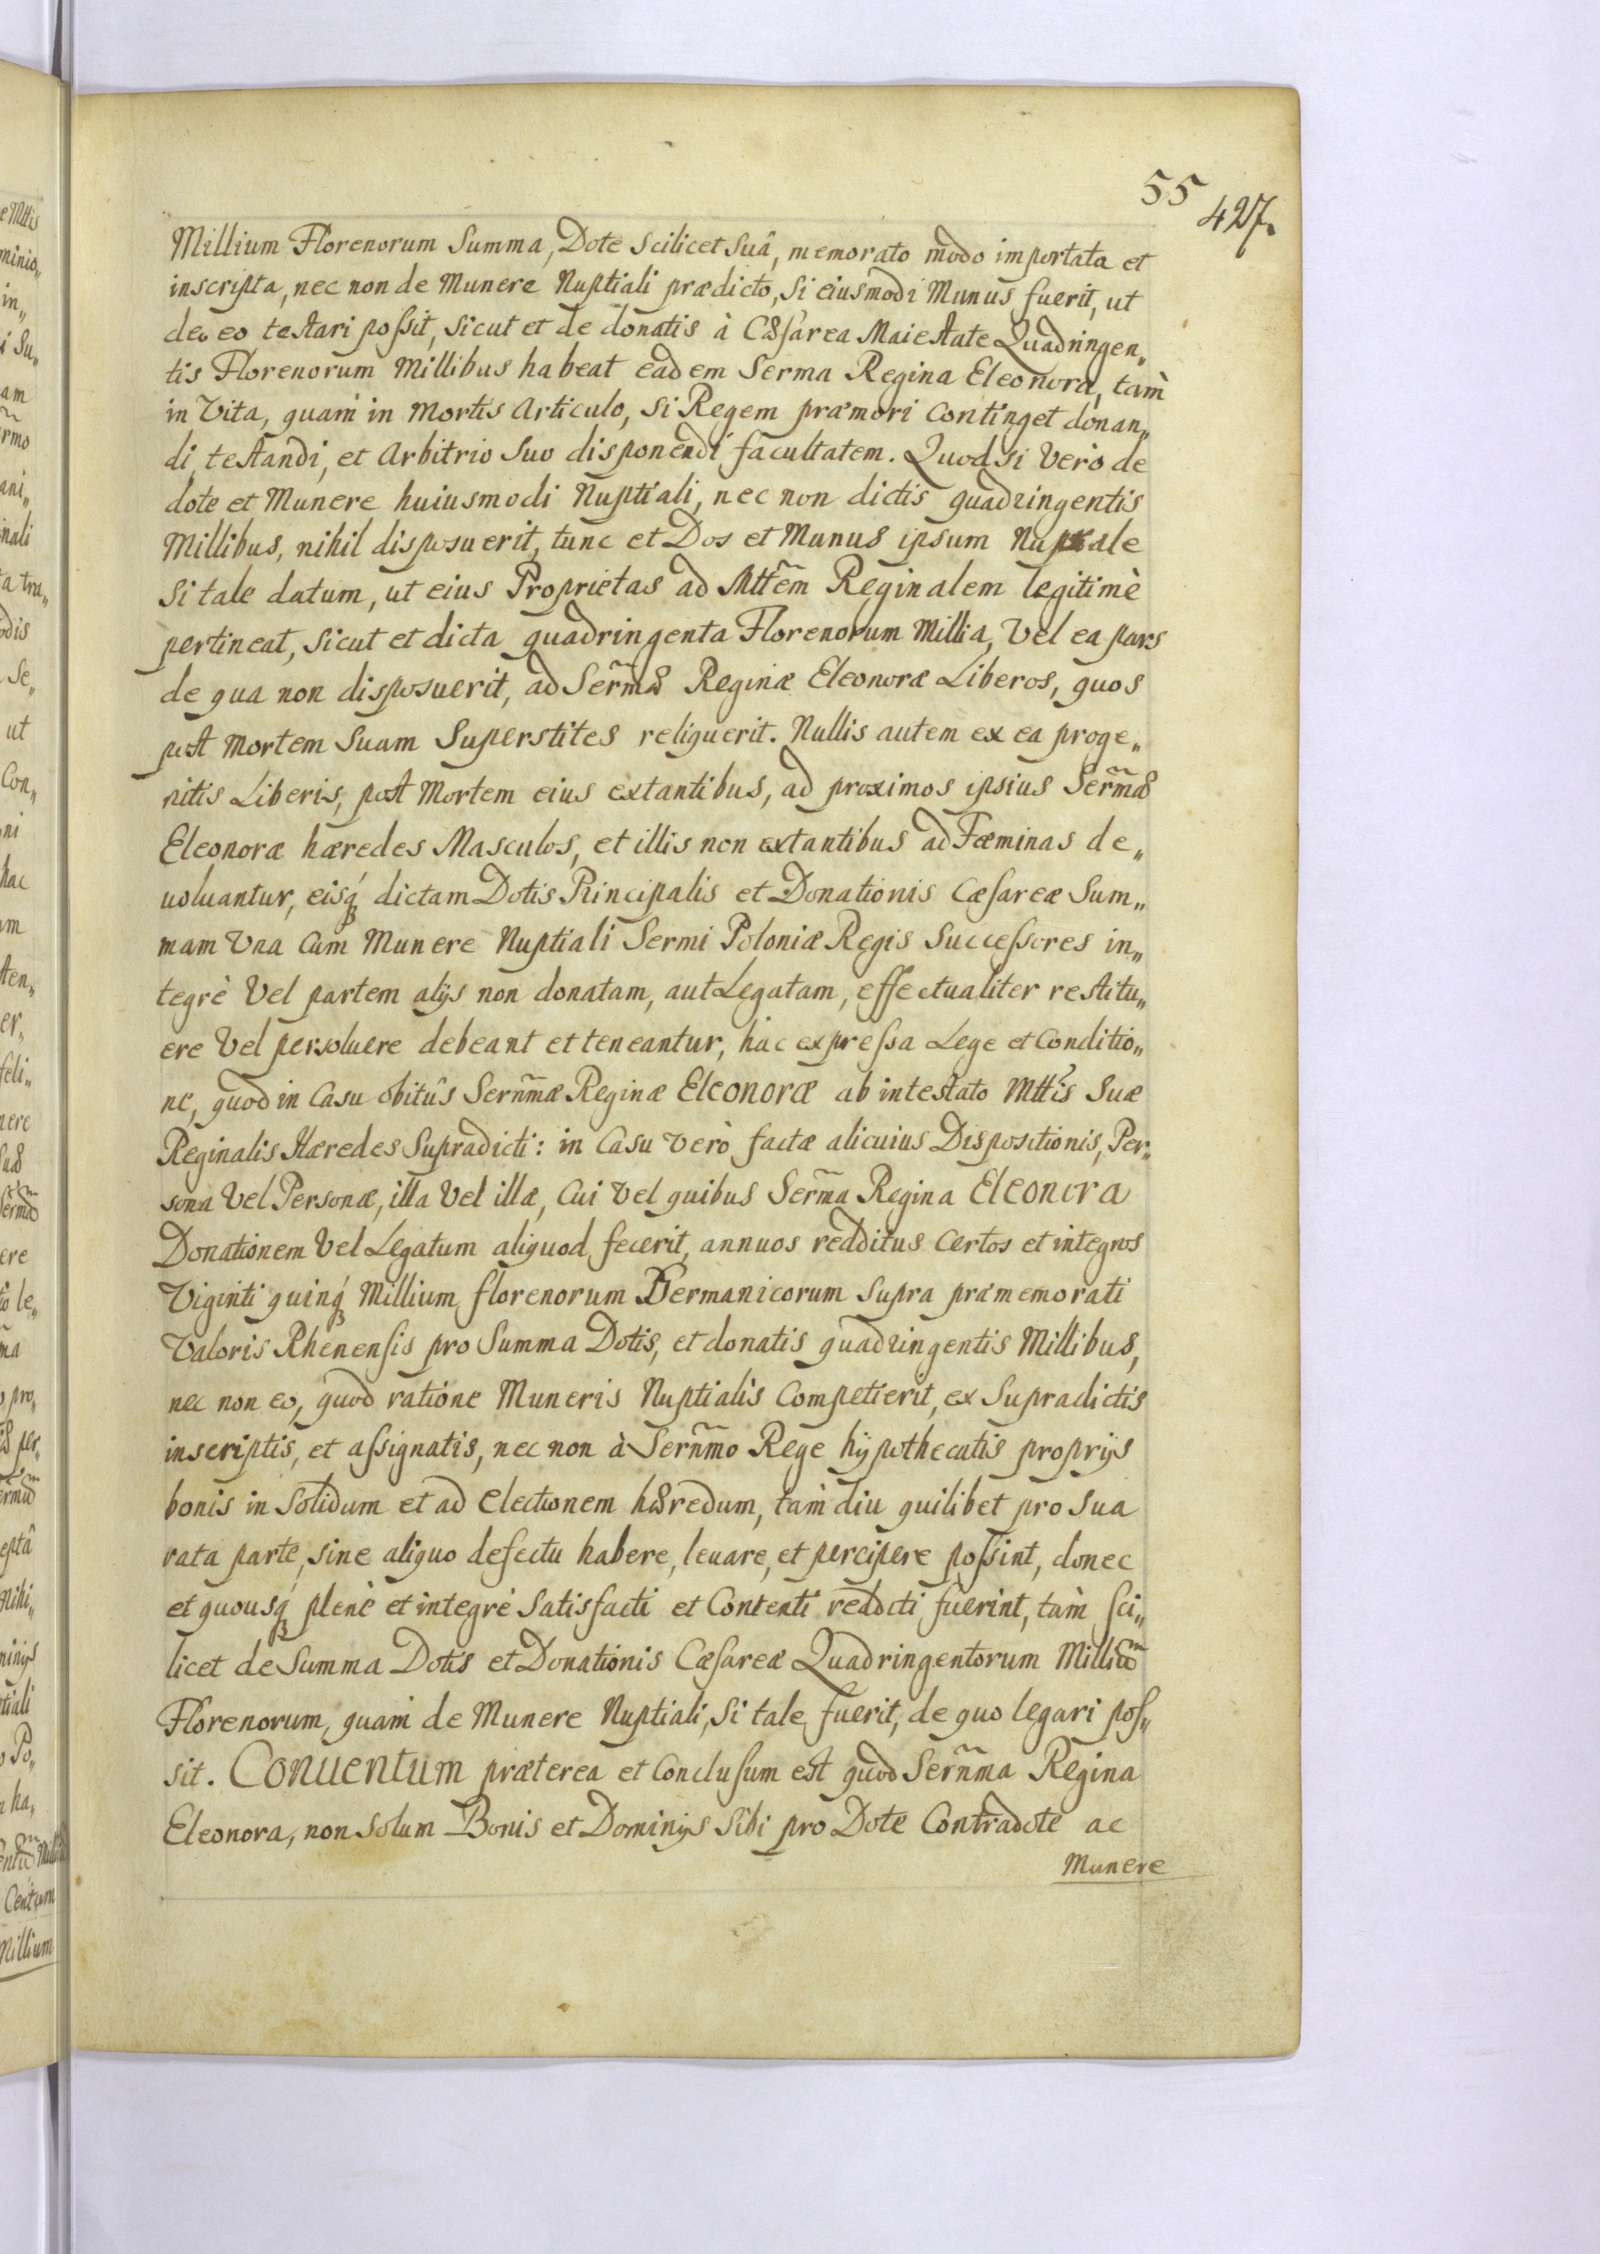 55
427.
Millium Florenorum Summa, Dote scilicet suâ, memorato modo importata et
inscripta, nec non de Munere Nuptiali prædicto, si eiusmodi Munus fuerit, ut
de eo testari possit, sicut et de donatis à Cæsarea Maiestate Quadringen„
tis Florenorum Millibus habeat eadem Serma Regina Eleonora, tam̀
in Vita, quam̀ in Mortis Articulo, si Regem præmori Continget donan„
di, testandi, et Arbitrio Suo disponendi facultatem. Quod si Verò de
dote et Munere huiusmodi Nuptiali, nec non dictis quadringentis
Millibus, nihil disposuerit, tunc et Dos et Munus ipsum Nuptiale
si tale datum, ut eius Proprietas ad Mttẽm Reginalem legitimè
pertineat, sicut et dicta quadringenta Florenorum Millia, Vel ea pars
de qua non disposuerit, ad Serm̃æ Reginæ Eleonoræ Liberos, quos
post Mortem Suam Superstites reliquerit. Nullis autem ex ea proge„
nitis Liberis, post Mortem eius extantibus, ad proximos ipsius Serm̃æ
Eleonoræ hæredes Masculos, et illis non extantibus ad Fœminas de„
uoluantur, eisq́ dictam Dotis Principalis et Donationis Cæsareæ Sum„
mam Vna Cum Munere Nuptiali Sermi Poloniæ Regis Successores in„
tegrè Vel partem alijs non donatam, aut Legatam, effectualiter restitu„
ere Vel persoluere debeant et teneantur, hac expressa Lege et Conditio„
ne, quod in Casu obitûs Sern̄mæ Reginæ Eleonoræ ab intestato Mttis Suæ
Reginalis Hæredes Supradicti: in Casu Verò factæ alicuius Dispositionis, Per„
sona Vel Personæ, illa Vel illæ, Cui Vel quibus Serm̃a Regina Eleonora
Donationem Vel Legatum aliquod fecerit, annuos redditus Certos et integros
Viginti quinq́ Millium florenorum Germanicorum Supra præmemorati
Valoris Rhenensis pro Summa Dotis, et donatis quadringentis Millibus,
nec non eo, quod ratione Muneris Nuptialis Competierit, ex Supradictis
inscriptis, et assignatis, nec non à Sern̄mo Rege hÿpothecatis proprijs
bonis in Solidum et ad Electionem hæredum, tam̀ diu quilibet pro Sua
rata parte, sine aliquo defectu habere, leuare, et percipere possint, donec
et quousq́ plenè et integrè Satisfacti et Contenti reddcti fuerint, tam̀ sci„
licet de Summa Dotis et Donationis Cæsareæ Quadringentorum Milliũ
Florenorum, quam̀ de Munere Nuptiali, Si tale fuerit, de quo legari pos„
sit. Conuentum præterea et Conclusum est quod Sern̄ma Regina
Eleonora, non Solum Bonis et Dominijs Sibi pro Dote Contradote ac
Munere